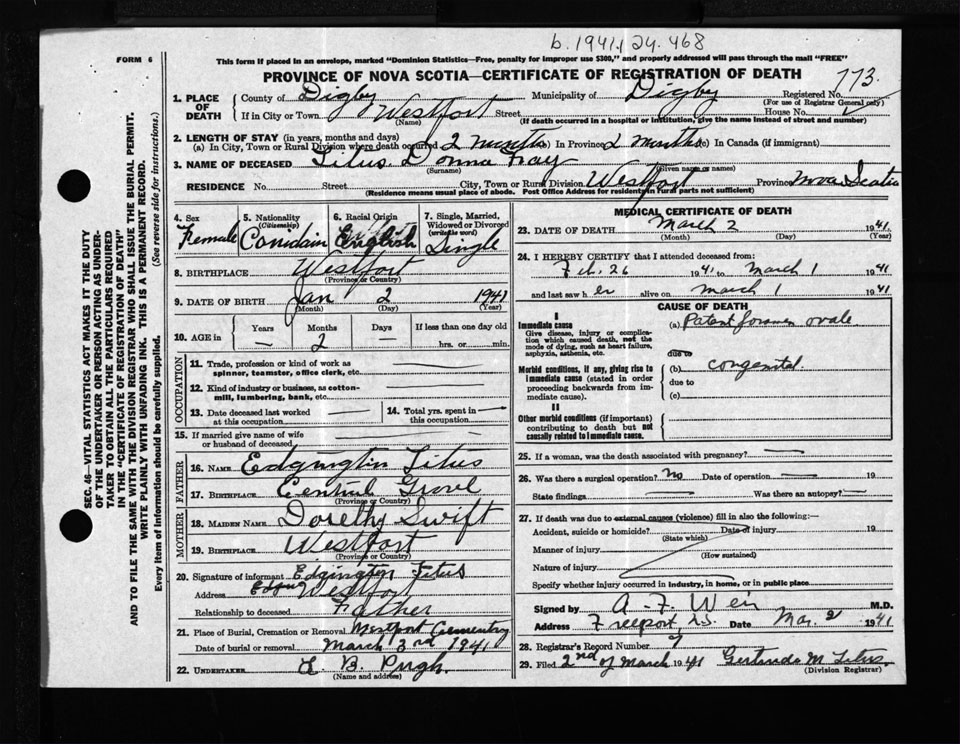 b. 1941. 24. 468
FORM 6
This form if placed in an envelope, marked "Dominion Statistics—Free, penalty for improper use $300," and properly addressed will pass through the mail "FREE"
PROVINCE OF NOVA SCOTIA—CERTIFICATE OF REGISTRATION OF DEATH
773
1. PLACE OF DEATH
County of Digby Municipality of Digby Registered No.
(For use of Registrar General only)
If in City or Town Westport Street House No.
(Name) (If death occurred in a hospital or institution, give the name instead of street and number)
2. LENGTH OF STAY (in years, months and days)
(a) In City, Town or Rural Division where death occurred 2 months (b) In Province 2 months (c) In Canada (if immigrant)
3. NAME OF DECEASED Titus Donna Fay
(Surname) (Given name or names)
RESIDENCE No. Street City, Town or Rural Division Westport Province Nova Scotia
(Residence means usual place of abode. Post Office Address for residents in Rural parts not sufficient)
4. Sex Female
5. Nationality (Citizenship) Canidain
6. Racial Origin English
7. Single, Married, Widowed or Divorced (write the word) Single
8. BIRTHPLACE Westport
(Province or Country)
9. DATE OF BIRTH Jan 2 1941
(Month) (Day) (Year)
10. AGE in Years — Months 2 Days — If less than one day old hrs. or min.
OCCUPATION
11. Trade, profession or kind of work as spinner, teamster, office clerk, etc. —
12. Kind of industry or business, as cotton-mill, lumbering, bank, etc. —
13. Date deceased last worked at this occupation —
14. Total yrs. spent in this occupation —
15. If married give name of wife or husband of deceased —
FATHER
16. NAME Edgington Titus
17. BIRTHPLACE Central Grove
(Province or Country)
MOTHER
18. MAIDEN NAME Dorethy Swift
19. BIRTHPLACE Westport
(Province or Country)
20. Signature of informant Edgington Titus
Address Westport
Relationship to deceased Father
21. Place of Burial, Cremation or Removal Westport Cementry
Date of burial or removal March 3rd 1941
22. UNDERTAKER L. B. Pugh.
(Name and address)
MEDICAL CERTIFICATE OF DEATH
23. DATE OF DEATH March 2 1941
(Month) (Day) (Year)
24. I HEREBY CERTIFY that I attended deceased from:
Feb. 26 1941 to March 1 1941
and last saw her alive on March 1 1941
CAUSE OF DEATH
I
Immediate cause
Give disease, injury or complication which caused death, not the mode of dying, such as heart failure, asphyxia, asthenia, etc.
(a) Patent foramen ovale
due to
Morbid conditions, if any, giving rise to immediate cause (stated in order proceeding backwards from immediate cause).
(b) congenital.
due to
(c)
II
Other morbid conditions (if important) contributing to death but not causally related to immediate cause.
25. If a woman, was the death associated with pregnancy? —
26. Was there a surgical operation? No Date of operation — 19
State findings — Was there an autopsy? —
27. If death was due to external causes (violence) fill in also the following:—
Accident, suicide or homicide? Date of injury 19
(State which)
Manner of injury
(How sustained)
Nature of injury
Specify whether injury occurred in industry, in home, or in public place
Signed by A. F. Weir M.D.
Address Freeport, N.S. Date Mar. 2 1941
28. Registrar's Record Number 9
29. Filed 2nd of March 1941 Gertrude M Titus.
(Division Registrar)
SEC. 46—VITAL STATISTICS ACT MAKES IT THE DUTY
OF THE UNDERTAKER OR PERSON ACTING AS UNDER-
TAKER TO OBTAIN ALL THE PARTICULARS REQUIRED
IN THE "CERTIFICATE OF REGISTRATION OF DEATH"
AND TO FILE THE SAME WITH THE DIVISION REGISTRAR WHO SHALL ISSUE THE BURIAL PERMIT.
WRITE PLAINLY WITH UNFADING INK. THIS IS A PERMANENT RECORD.
Every item of information should be carefully supplied. (See reverse side for instructions.)